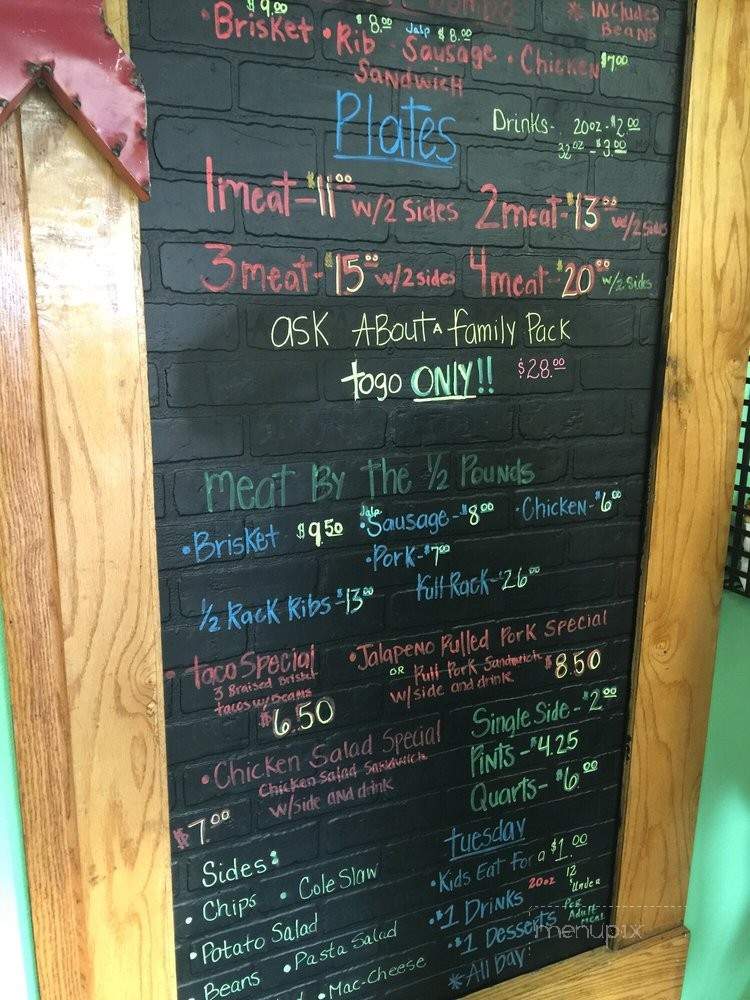 * INCLUDES
BEANS
$9.00 $8.00 Jalp $8.00
•Brisket •Rib •Sausage •Chicken $7.00
SANDWICH
Plates
Drinks- 20oz-$2.00
32oz-$3.00
1meat-$11.00 w/2 sides 2meat-$13.00 w/2 sides
3meat-$15.00 w/2 sides 4meat-$20.00 w/2 sides
ask About A family Pack
togo ONLY!! $28.00
meat By the 1/2 Pounds
•Brisket $9.50 •Jalp Sausage-$8.00 •Chicken-$6.00
•Pork-$7.00
1/2 Rack Ribs-$13.00 Full Rack-$26.00
taco Special
3 Braised Brisket
tacos w/Beans
$6.50
•Jalapeno Pulled Pork Special
OR Pull Pork Sandwich
w/side and drink $8.50
•Chicken Salad Special
Chicken Salad Sandwich
w/side and drink
$7.00
Single Side-$2.00
Pints-$4.25
Quarts-$6.00
Sides:
•Chips •Cole Slaw
•Potato Salad
Beans •Pasta Salad
•Mac-Cheese
tuesday
•Kids Eat For a $1.00
12
& Under
Per
Adult
Meal
•$1 Drinks 20oz
•$1 Desserts
*All Day
menupix